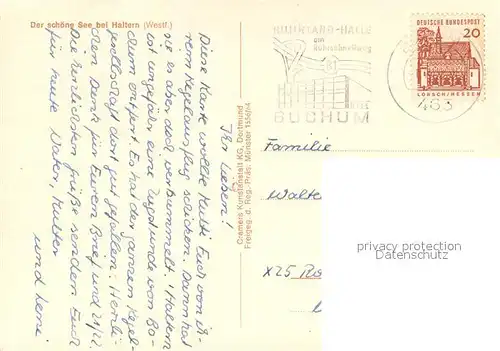 Der schöne See bei Haltern (Westf.)
Ihr Lieben!
Diese Karte wollte Mutti Euch von ih-
rem Kegelausflug schicken. Dann hat
sie es aber doch verbummelt. (Haltern
ist ungefähr eine Zugstunde von Bo-
chum entfernt. Es hat der ganzen Kegel-
gesellschaft dort gut gefallen. Herzli-
chen Dank für Euren Brief und 21/22.
Die herzlichsten Grüße senden Euch
für heute Vater, Mutter
und Leni
Cramers Kunstanstalt KG, Dortmund
Freigeg. d. Reg.-Präs. Münster 1556/64
RUHRLAND-HALLE
am
Ruhrschnellweg
BOCHUM
DEUTSCHE BUNDESPOST
20
LORSCH/HESSEN
463
Familie
Walte
X25 Ro
privacy protection
Datenschutz